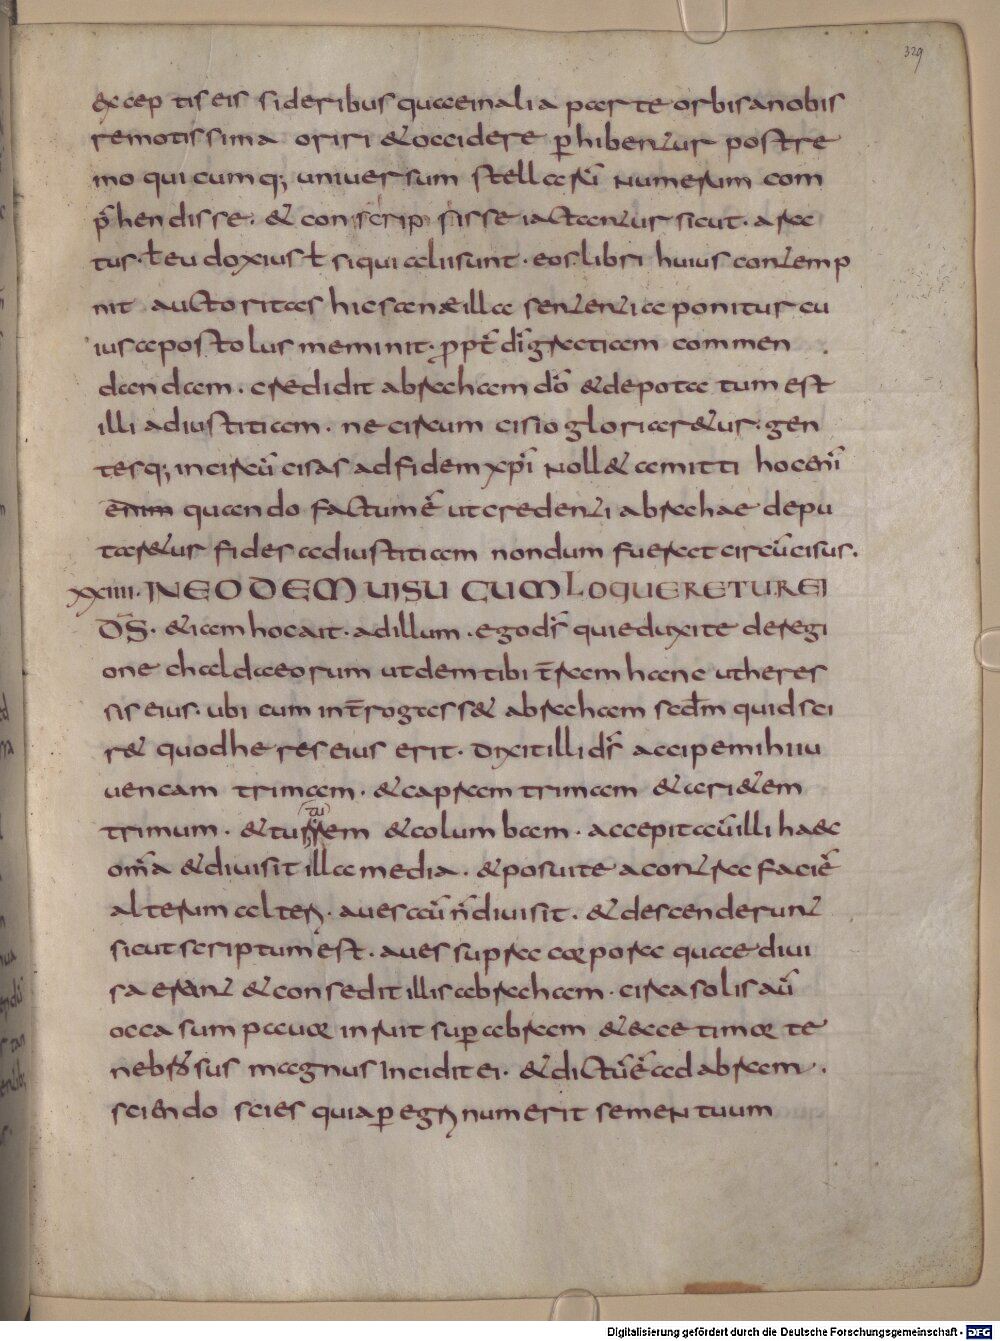 329
excep tis eis sideribus quae in alia parte orbis a nobis
remotissima oriri & occidere ꝑhibentur postre
mo qui cumq; uniuersum stellarū numerum com
p̄hendisse. & conscripsisse iactantur sicut. ara
tus. ł eudoxius ł siqui alii sunt. eos libri huius contemp
nit auctoritas hic sane illa sententia ponitur cu
ius apostolus meminit. ꝓpt̄ dī gratiam commen
dandam. credidit abraham dō & depota tum est
illi ad iustitiam. ne circum cisio gloriar&ur. gen
tesq; incircū cisas ad fidem xp̄i noll& amitti hoc enī
enim quando factum ē ut credenti abrahae depu
tar&ur fides ad iustitiam nondum fuerat circūcisus.
XXIIII. IN EODEM UISU CUM LOQUERETUR EI
DS̄. &iam hoc ait. ad illum. ego ds̄ qui eduxi te de regi
one chaldaeorum ut dem tibi t̄ram hanc ut heres
sis eius. ubi cum int̄rogass& abraham secdm quid sci
r& quod heres eius erit. dixit illi ds̄ accipe mihi iu
uencam trimam. & capram trimam & ari&em
trimum. & turrem & columbam. accepit aū illi haec
tu
om̄a & diuisit illa media. & posuit ea contra faciē
alterum alteꝝ. aues aū n̄ diuisit. & descenderunt
sicut scriptum est. aues supra corpora quae diui
sa erant & consedit illis abraham. circa solis aū
occasum pauor inruit suꝑ abram & ecce timor te
nebrosus magnus incidit ei. & dictū ē ad abram.
sciendo scies quia ꝑegꝝnum erit semen tuum
Digitalisierung gefördert durch die Deutsche Forschungsgemeinschaft - DFG